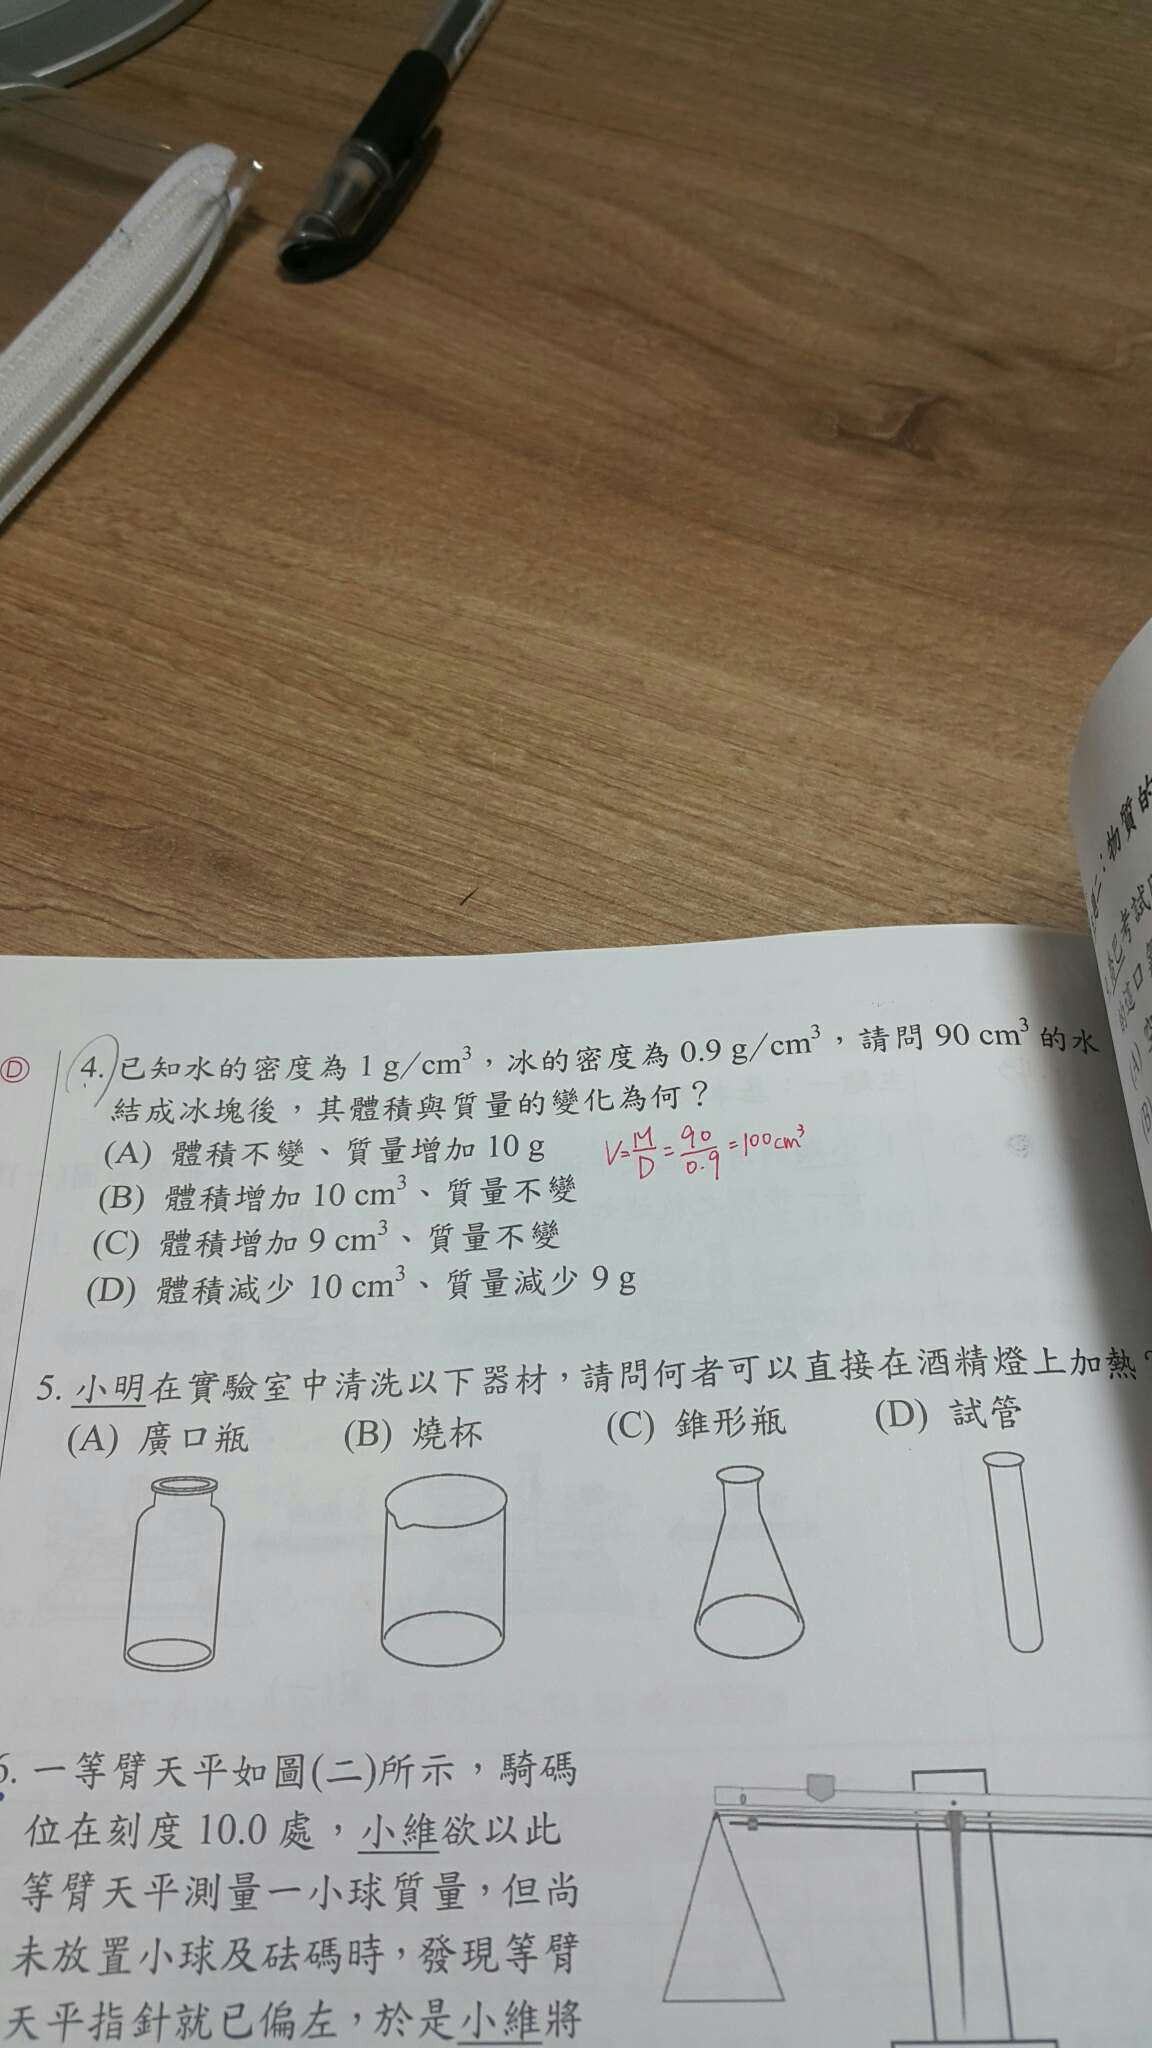 Ⓓ
4. 已知水的密度為 1 g/cm³，冰的密度為 0.9 g/cm³，請問 90 cm³ 的水
結成冰塊後，其體積與質量的變化為何？
(A) 體積不變、質量增加 10 g
V=M/D=90/0.9=100cm³
(B) 體積增加 10 cm³、質量不變
(C) 體積增加 9 cm³、質量不變
(D) 體積減少 10 cm³、質量減少 9 g
5. 小明在實驗室中清洗以下器材，請問何者可以直接在酒精燈上加熱？
(A) 廣口瓶 (B) 燒杯 (C) 錐形瓶 (D) 試管
6. 一等臂天平如圖(二)所示，騎碼
位在刻度 10.0 處，小維欲以此
等臂天平測量一小球質量，但尚
未放置小球及砝碼時，發現等臂
天平指針就已偏左，於是小維將
0
：物質的
考試
(A)
(B)